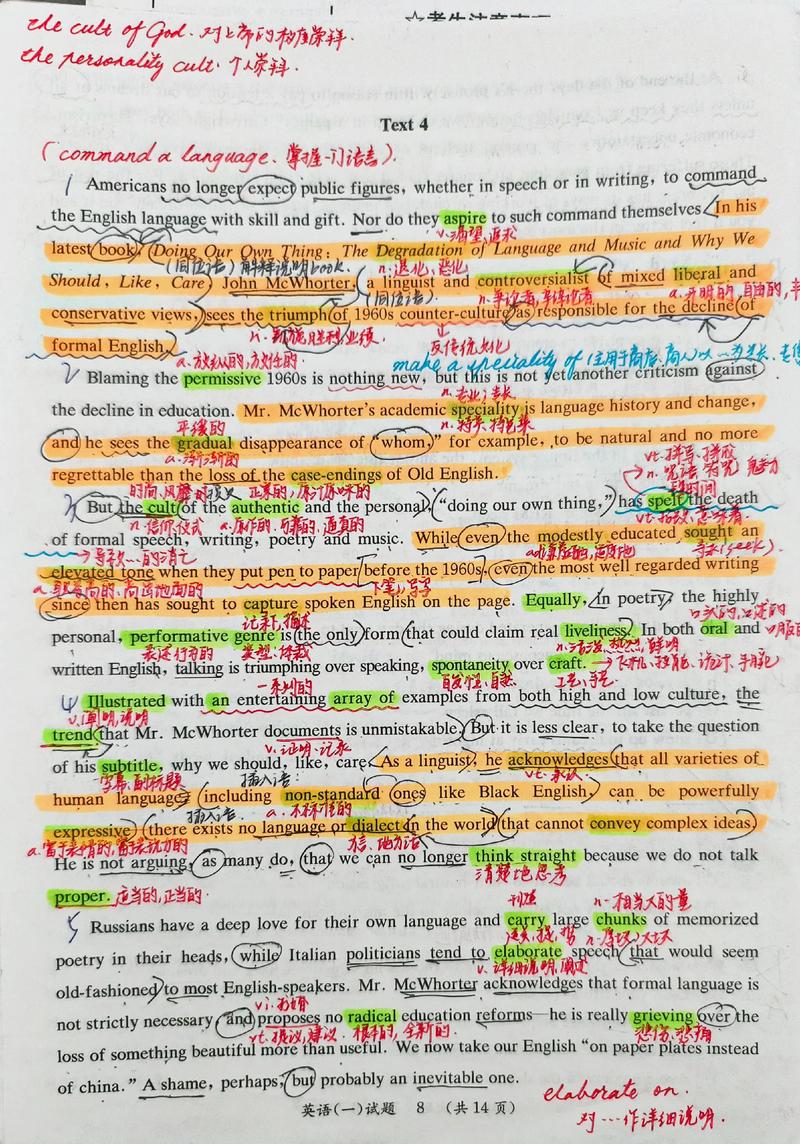 the cult of God. 对上帝的极度崇拜.
the personality cult. 个人崇拜.
Text 4
(command a language. 掌握一门语言).
1 Americans no longer expect public figures, whether in speech or in writing, to command
the English language with skill and gift. Nor do they aspire to such command themselves. In his
v. 渴望, 追求
latest book, Doing Our Own Thing: The Degradation of Language and Music and Why We
(同位语) 解释说明book. n. 退化, 恶化
Should, Like, Care, John McWhorter, a linguist and controversialist of mixed liberal and
(同位语). n. 争论者, a. 开明的, 自由的,
conservative views, sees the triumph of 1960s counter-culture as responsible for the decline of
n. 凯旋, 胜利, 业绩 反传统文化
formal English.
a. 放纵的, 放任的. make a speciality of (主用于商店、商人) 以…为专长,
2 Blaming the permissive 1960s is nothing new, but this is not yet another criticism against
n. 专业; 专长
the decline in education. Mr. McWhorter's academic speciality is language history and change,
平缓的 n. 特美, 特色菜
and he sees the gradual disappearance of "whom," for example, to be natural and no more
a. 渐渐的
regrettable than the loss of the case-endings of Old English.
vt. 拼写, 拼成
3 But the cult of the authentic and the personal, "doing our own thing," has spelt the death
n. 信仰, 仪式 a. 原作的, 可靠的, 逼真的 vt. 招致, 意味着
of formal speech, writing, poetry and music. While even the modestly educated sought an
→ 导致…的消亡 寻求(seek).
elevated tone when they put pen to paper before the 1960s, even the most well regarded writing
下笔, 写字
since then has sought to capture spoken English on the page. Equally, in poetry, the highly
记录下, 描述 口头的, 口述的
personal, performative genre is the only form that could claim real liveliness. In both oral and
表述行为的 类型, 体裁
written English, talking is triumphing over speaking, spontaneity over craft. → 飞机, 技能, 诡计, 手腕
一系列的 自发性, 自然 工艺, 手艺
4 Illustrated with an entertaining array of examples from both high and low culture, the
v. 阐明, 说明
trend that Mr. McWhorter documents is unmistakable. But it is less clear, to take the question
v. 证明, 记录
of his subtitle, why we should, like, care. As a linguist, he acknowledges that all varieties of
字幕, 副标题 插入语: vt. 承认
human language, including non-standard ones like Black English, can be powerfully
插入语. a. 不标准的
expressive—there exists no language or dialect in the world that cannot convey complex ideas.
a. 富于表情的, 富表现力的 方言, 地方话
He is not arguing, as many do, that we can no longer think straight because we do not talk
清楚地思考
proper. 应当的, 正当的.
n. 相当大的量
5 Russians have a deep love for their own language and carry large chunks of memorized
n. 厚块, 大块
poetry in their heads, while Italian politicians tend to elaborate speech that would seem
v. 详细说明, 阐述
old-fashioned to most English-speakers. Mr. McWhorter acknowledges that formal language is
not strictly necessary, and proposes no radical education reforms—he is really grieving over the
vt. 提议, 建议. 根本的, 全新的. 悲伤, 悲痛
loss of something beautiful more than useful. We now take our English "on paper plates instead
of china." A shame, perhaps, but probably an inevitable one.
elaborate on.
英语(一)试题 8 (共14页)
对…作详细说明.